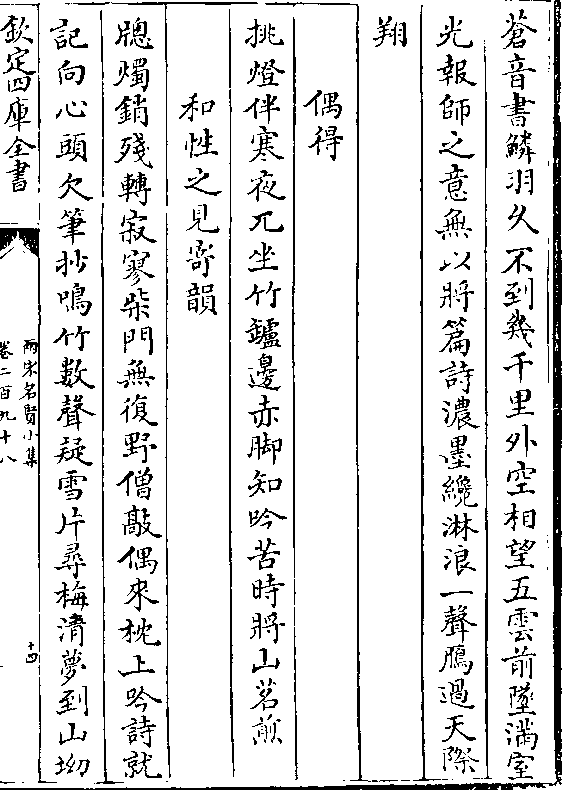 蒼音書鱗羽久不到幾千里外空相望五雲前墜滿室
光報師之意無以將篇詩濃墨纔淋浪一聲鴈過天際
翔
偶得
挑燈伴寒夜兀坐竹鑪邊赤脚知吟苦時將山茗煎
和性之見寄韻
牕燭銷殘轉寂寥柴門無復野僧敲偶來枕上吟詩就
記向心頭欠筆抄鳴竹數聲疑雪片尋梅清夢到山坳
欽定四庫全書
兩宋名賢小集
卷二百九十八
十四